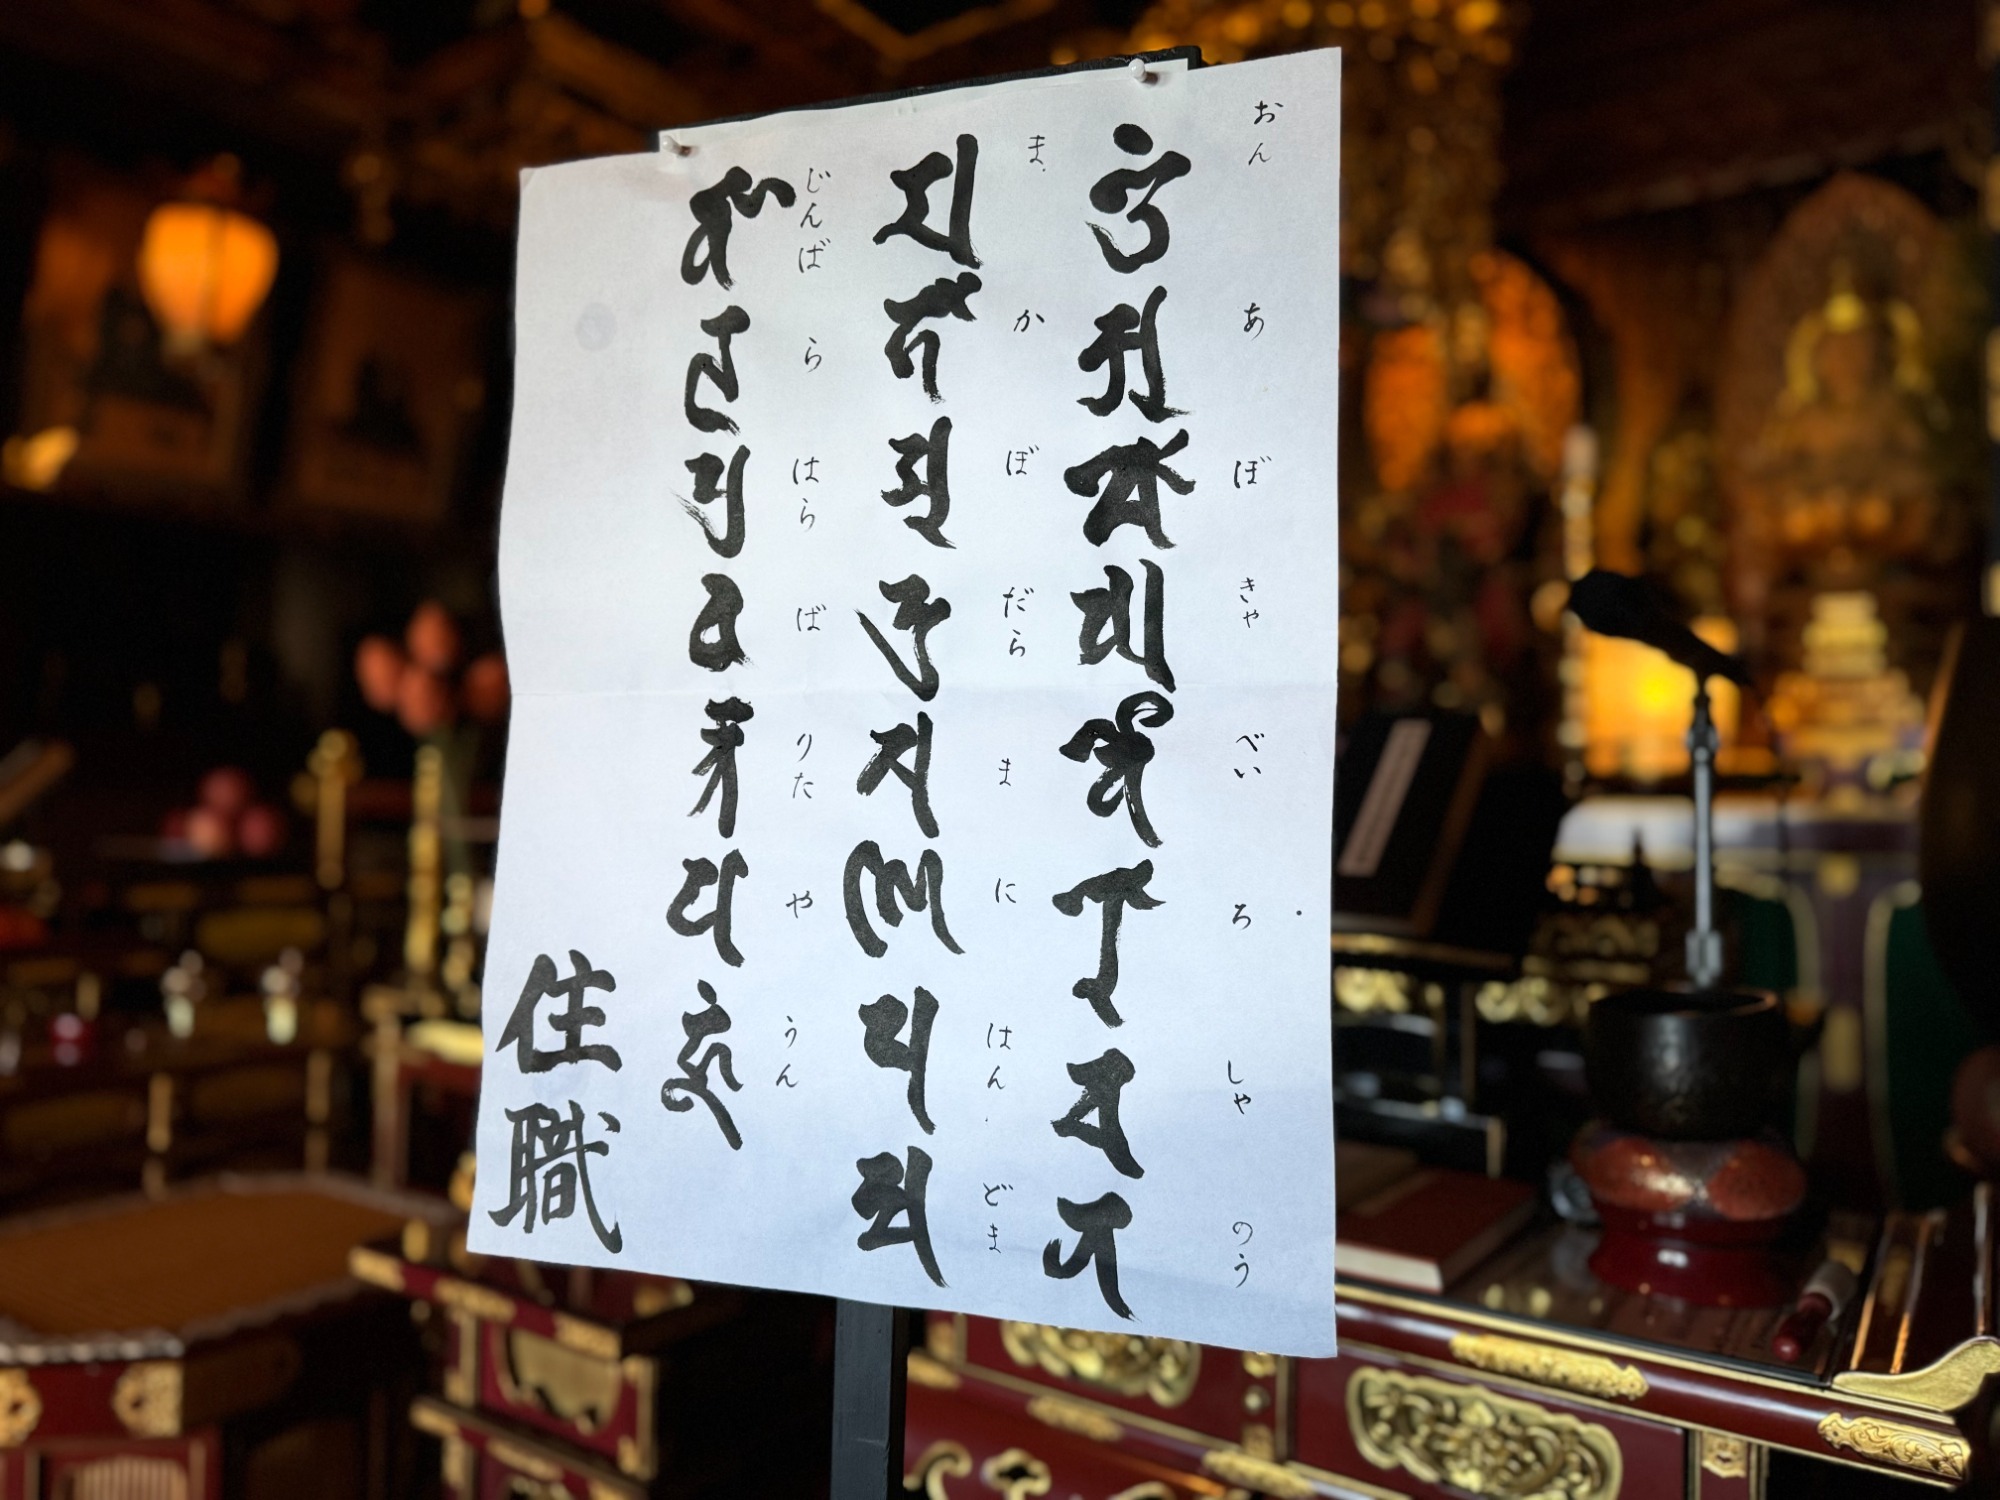 おん あ ぼ きゃ べい ろ しゃ のう
𑖌𑖼 𑖀 𑖦𑖺 𑖑 𑖪𑖹 𑖨𑖺 𑖓 𑖡
ま か ぼ だら ま に はん どま
𑖦 𑖮𑖯 𑖦𑖲 𑖟𑖿𑖨𑖯 𑖦 𑖜𑖰 𑖢 𑖟𑖿𑖦
じんば ら はら ば りた や うん
𑖕𑖿𑖪𑖯 𑖩 𑖢𑖿𑖨 𑖪 𑖨𑖿𑖝 𑖧 𑖮𑖳𑖽
住職